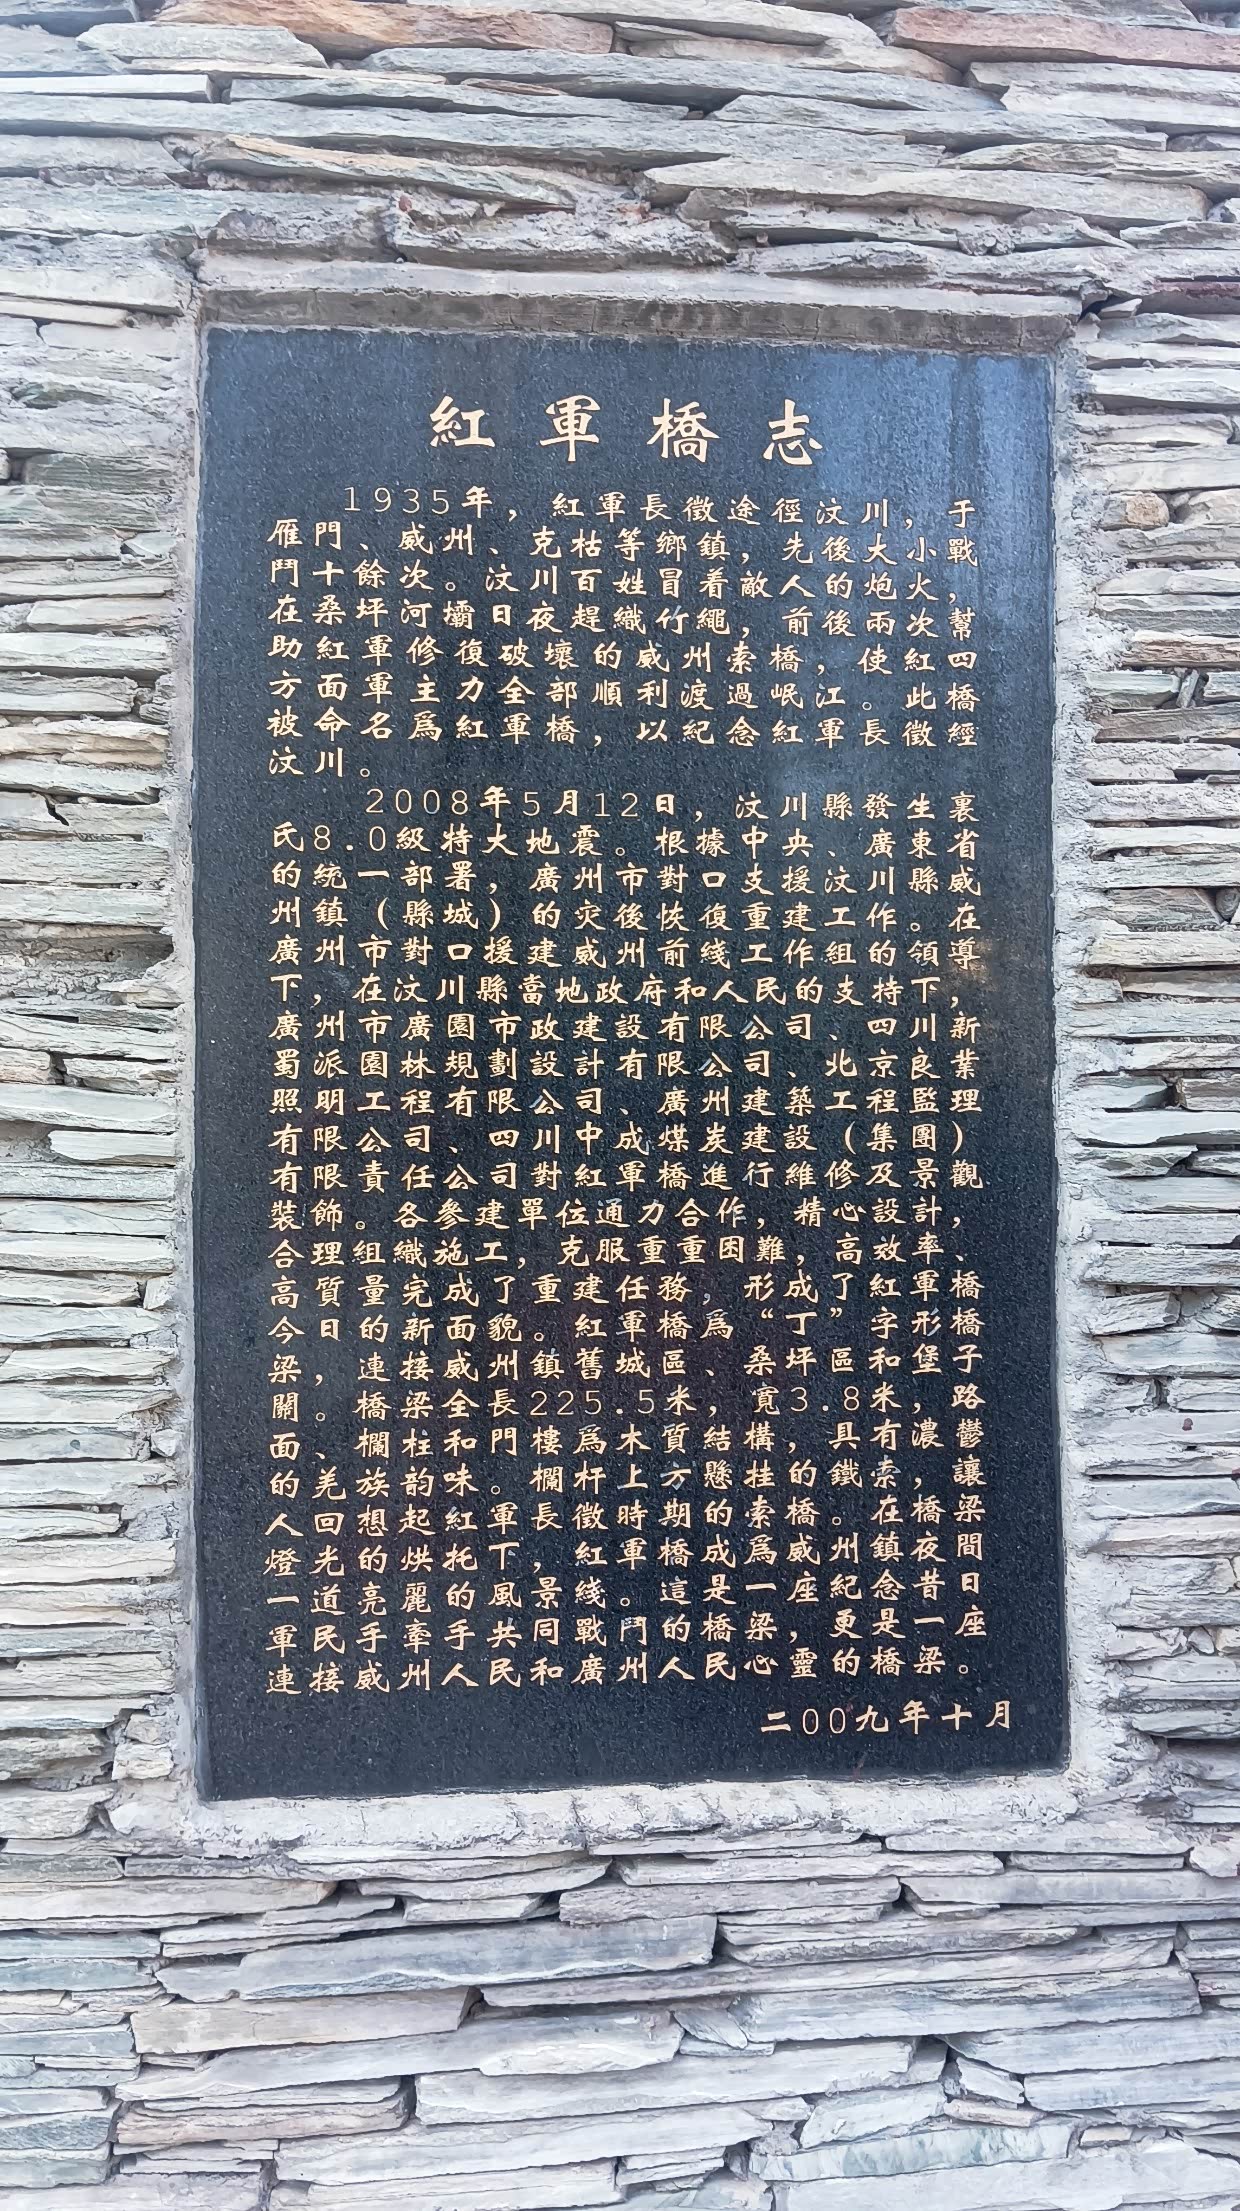 紅軍橋志
1935年，紅軍長徵途徑汶川，于
雁門、威州、克枯等鄉鎮，先後大小戰
鬥十餘次。汶川百姓冒着敵人的炮火，
在桑坪河壩日夜趕織竹繩，前後兩次幫
助紅軍修復破壞的威州索橋，使紅四
方面軍主力全部順利渡過岷江。此橋
被命名爲紅軍橋，以紀念紅軍長徵經
汶川。
2008年5月12日，汶川縣發生裏
氏8.0級特大地震。根據中央、廣東省
的統一部署，廣州市對口支援汶川縣威
州鎮（縣城）的灾後恢復重建工作。在
廣州市對口援建威州前綫工作組的領導
下，在汶川縣當地政府和人民的支持下，
廣州市廣園市政建設有限公司、四川新
蜀派園林規劃設計有限公司、北京良業
照明工程有限公司、廣州建築工程監理
有限公司、四川中成煤炭建設（集團）
有限責任公司對紅軍橋進行維修及景觀
裝飾。各參建單位通力合作，精心設計，
合理組織施工，克服重重困難，高效率、
高質量完成了重建任務，形成了紅軍橋
今日的新面貌。紅軍橋爲“丁”字形橋
梁，連接威州鎮舊城區、桑坪區和堡子
關。橋梁全長225.5米，寬3.8米，路
面、欄柱和門樓爲木質結構，具有濃鬱
的羌族韵味。欄杆上方懸挂的鐵索，讓
人回想起紅軍長徵時期的索橋。在橋梁
燈光的烘托下，紅軍橋成爲威州鎮夜間
一道亮麗的風景綫。這是一座紀念昔日
軍民手牽手共同戰鬥的橋梁，更是一座
連接威州人民和廣州人民心靈的橋梁。
二00九年十月